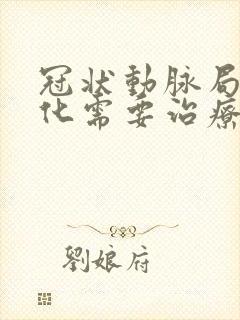 冠状動脉局
化需要治療
劉娘府